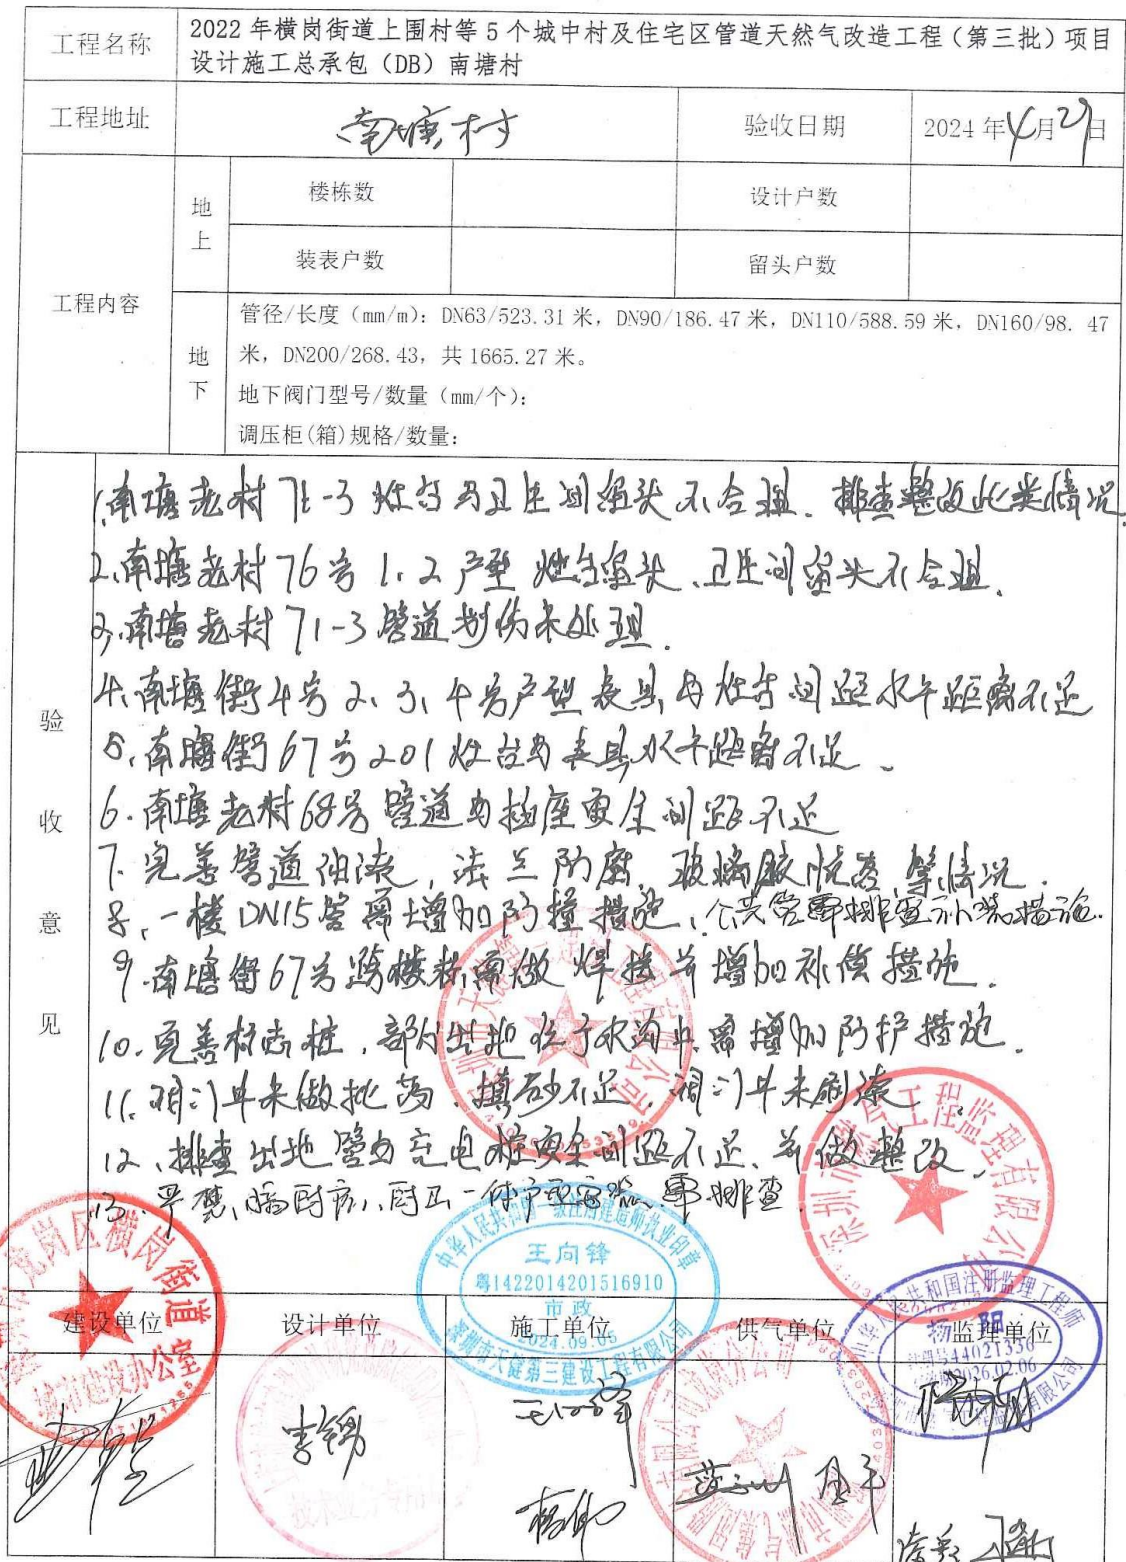 工程名称
2022 年横岗街道上围村等 5 个城中村及住宅区管道天然气改造工程（第三批）项目
设计施工总承包（DB）南塘村
工程地址
南塘村
验收日期
2024 年4月29日
工程内容
地上
楼栋数
设计户数
装表户数
留头户数
地下
管径/长度（mm/m）：DN63/523.31 米，DN90/186.47 米，DN110/588.59 米，DN160/98. 47
米，DN200/268.43，共 1665.27 米。
地下阀门型号/数量（mm/个）：
调压柜(箱)规格/数量：
验收意见
1.南塘老村71-3灶台与卫生间留头不合理．排查整改此类情况
2、南塘老村76号1、2户型灶台留头、卫生间留头不合理．
3、南塘老村71-3管道划伤未处理．
4、南塘街4号2、3、4号户型表具与灶台间距水平距离不足
5、南塘街67号201灶台与表具水平距离不足、
6.南塘老村68号管道与插座安全间距不足
7.完善管道油漆，法兰防腐，玻璃胶脱落等情况．
8、一楼DN15管需增加防撞措施、公共管需排查
9.南塘街67号跨楼栋需做焊接并增加补偿措施．
10.完善标志桩，部分出地位于水沟中需增加防护措施．
11.阀门井未做批荡、填砂不足，阀门井未刷漆
12、排查出地管与充电桩安全间距不足、并做整改、
13．需排查．
建设单位
设计单位
施工单位
供气单位
监理单位
龙岗区横岗街道
城市建设办公室
中华人民共和国一级注册建造师执业印章
王向锋
粤1422014201516910
市政
深圳市天健第三建设工程有限公司
工程监理有限公司
中华人民共和国注册监理工程师
杨阳
王向锋
杨帅